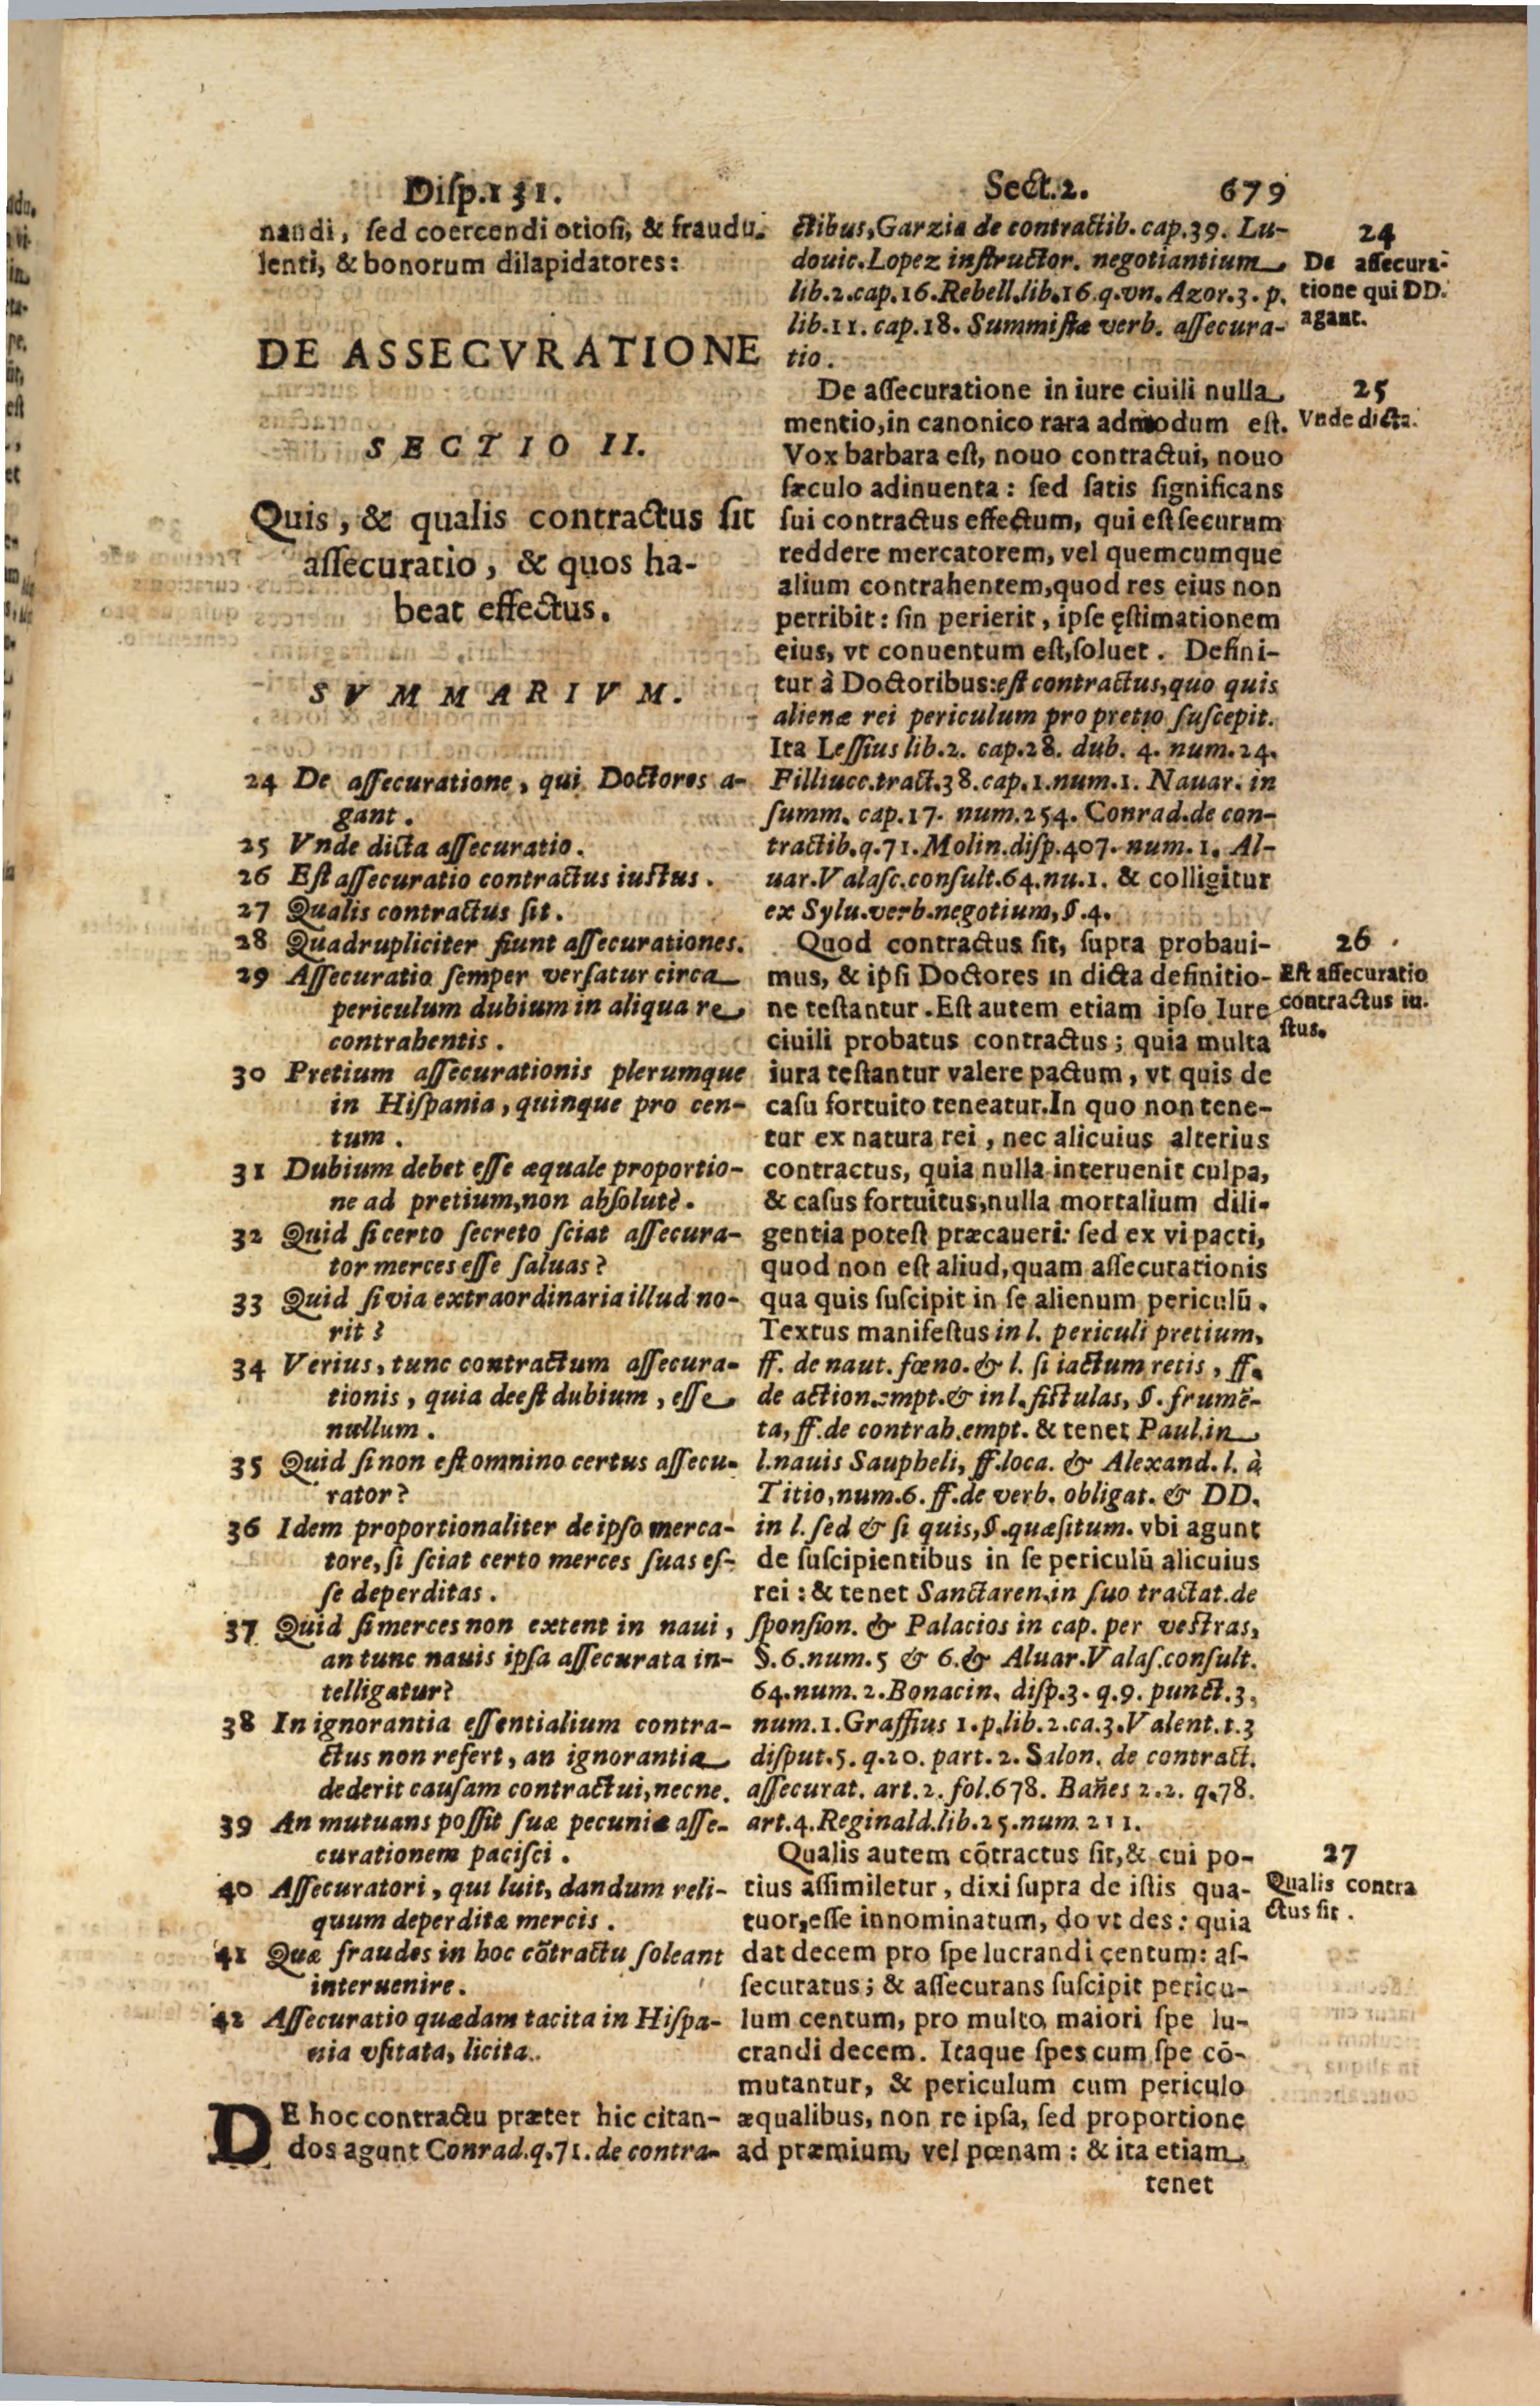 Disp.131. Sect.2. 679
nandi, sed coercendi otiosi, & fraudu-
lenti, & bonorum dilapidatores:
DE ASSECVRATIONE
SECTIO II.
Quis, & qualis contractus sit
assecuratio, & quos ha-
beat effectus.
SVMMARIVM.
24 De assecuratione, qui Doctores a-
gant.
25 Vnde dicta assecuratio.
26 Est assecuratio contractus iustus.
27 Qualis contractus sit.
28 Quadrupliciter fiunt assecurationes.
29 Assecuratio semper versatur circa
periculum dubium in aliqua re
contrahentis.
30 Pretium assecurationis plerumque
in Hispania, quinque pro cen-
tum.
31 Dubium debet esse æquale proportio-
ne ad pretium, non absolutè.
32 Quid si certo secreto sciat assecura-
tor merces esse saluas?
33 Quid si via extraordinaria illud no-
rit?
34 Verius, tunc contractum assecura-
tionis, quia deest dubium, esse
nullum.
35 Quid si non est omnino certus assecu-
rator?
36 Idem proportionaliter de ipso merca-
tore, si sciat certo merces suas es-
se deperditas.
37 Quid si merces non extent in naui,
an tunc nauis ipsa assecurata in-
telligatur?
38 In ignorantia essentialium contra-
ctus non refert, an ignorantia
dederit causam contractui, necne.
39 An mutuans possit suæ pecuniæ asse-
curationem pacisci.
40 Assecuratori, qui luit, dandum reli-
quum deperditæ mercis.
41 Quæ fraudes in hoc cõtractu soleant
interuenire.
42 Assecuratio quædam tacita in Hispa-
nia vsitata, licita.
DE hoc contractu præter hic citan-
dos agunt Conrad.q.71. de contra-
ctibus, Garzia de contractib. cap.39. Lu-
douic. Lopez instructor. negotiantium
lib.2.cap.16. Rebell.lib.16.q.vn. Azor.3. p.
lib.11. cap.18. Summistæ verb. assecura-
tio.
24
De assecura-
tione qui DD.
agant.
De assecuratione in iure ciuili nulla
mentio, in canonico rara admodum est.
Vox barbara est, nouo contractui, nouo
sæculo adinuenta: sed satis significans
sui contractus effectum, qui est securum
reddere mercatorem, vel quemcumque
alium contrahentem, quod res eius non
perribit: sin perierit, ipse ęstimationem
eius, vt conuentum est, soluet. Defini-
tur à Doctoribus: est contractus, quo quis
alienæ rei periculum pro pretio suscepit.
Ita Lessius lib.2. cap.28. dub. 4. num.24.
Filliucc.tract.38.cap.1.num.1. Nauar. in
summ. cap.17. num.254. Conrad.de con-
tractib.q.71. Molin.disp.407. num.1. Al-
uar.Valasc.consult.64.nu.1. & colligitur
ex Sylu.verb.negotium, §.4.
25
Vnde dicta.
Quod contractus sit, supra probaui-
mus, & ipsi Doctores in dicta definitio-
ne testantur. Est autem etiam ipso Iure
ciuili probatus contractus; quia multa
iura testantur valere pactum, vt quis de
casu fortuito teneatur. In quo non tene-
tur ex natura rei, nec alicuius alterius
contractus, quia nulla interuenit culpa,
& casus fortuitus, nulla mortalium dili-
gentia potest præcaueri: sed ex vi pacti,
quod non est aliud, quam assecurationis
qua quis suscipit in se alienum periculũ.
Textus manifestus in l. periculi pretium,
ff. de naut. fœno. & l. si iactum retis, ff.
de action.empt. & in l. fistulas, §. frumẽ-
ta, ff.de contrah.empt. & tenet Paul.in
l.nauis Saupheli, ff.loca. & Alexand. l. à
Titio, num.6. ff.de verb. obligat. & DD.
in l. sed & si quis, §.quæsitum. vbi agunt
de suscipientibus in se periculũ alicuius
rei: & tenet Sanctaren.in suo tractat.de
sponsion. & Palacios in cap. per vestras,
§.6.num.5 & 6. & Aluar.Valas.consult.
64.num.2. Bonacin. disp.3. q.9. punct.3,
num.1. Graffius 1.p.lib.2.ca.3. Valent.t.3
disput.5. q.20. part.2. Salon. de contract.
assecurat. art.2. fol.678. Bañes 2.2. q.78.
art.4. Reginald.lib.25.num 211.
26
Est assecuratio
contractus iu-
stus.
Qualis autem cõtractus sit, & cui po-
tius assimiletur, dixi supra de istis qua-
tuor, esse innominatum, do vt des: quia
dat decem pro spe lucrandi centum: as-
securatus; & assecurans suscipit pericu-
lum centum, pro multo maiori spe lu-
crandi decem. Itaque spes cum spe cõ-
mutantur, & periculum cum periculo
æqualibus, non re ipsa, sed proportione
ad præmium, vel pœnam: & ita etiam
27
Qualis contra
ctus sit.
tenet